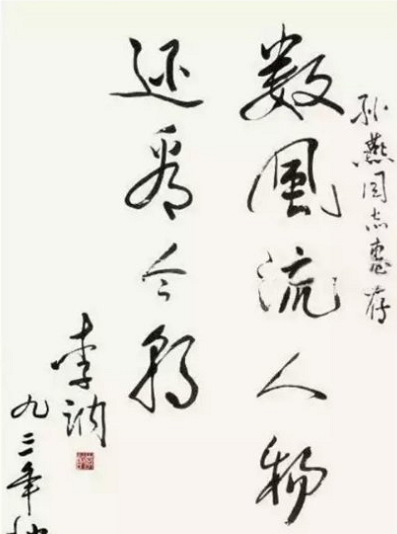 孙燕同志惠存
数風流人物
还看今朝
李讷
九二年秋